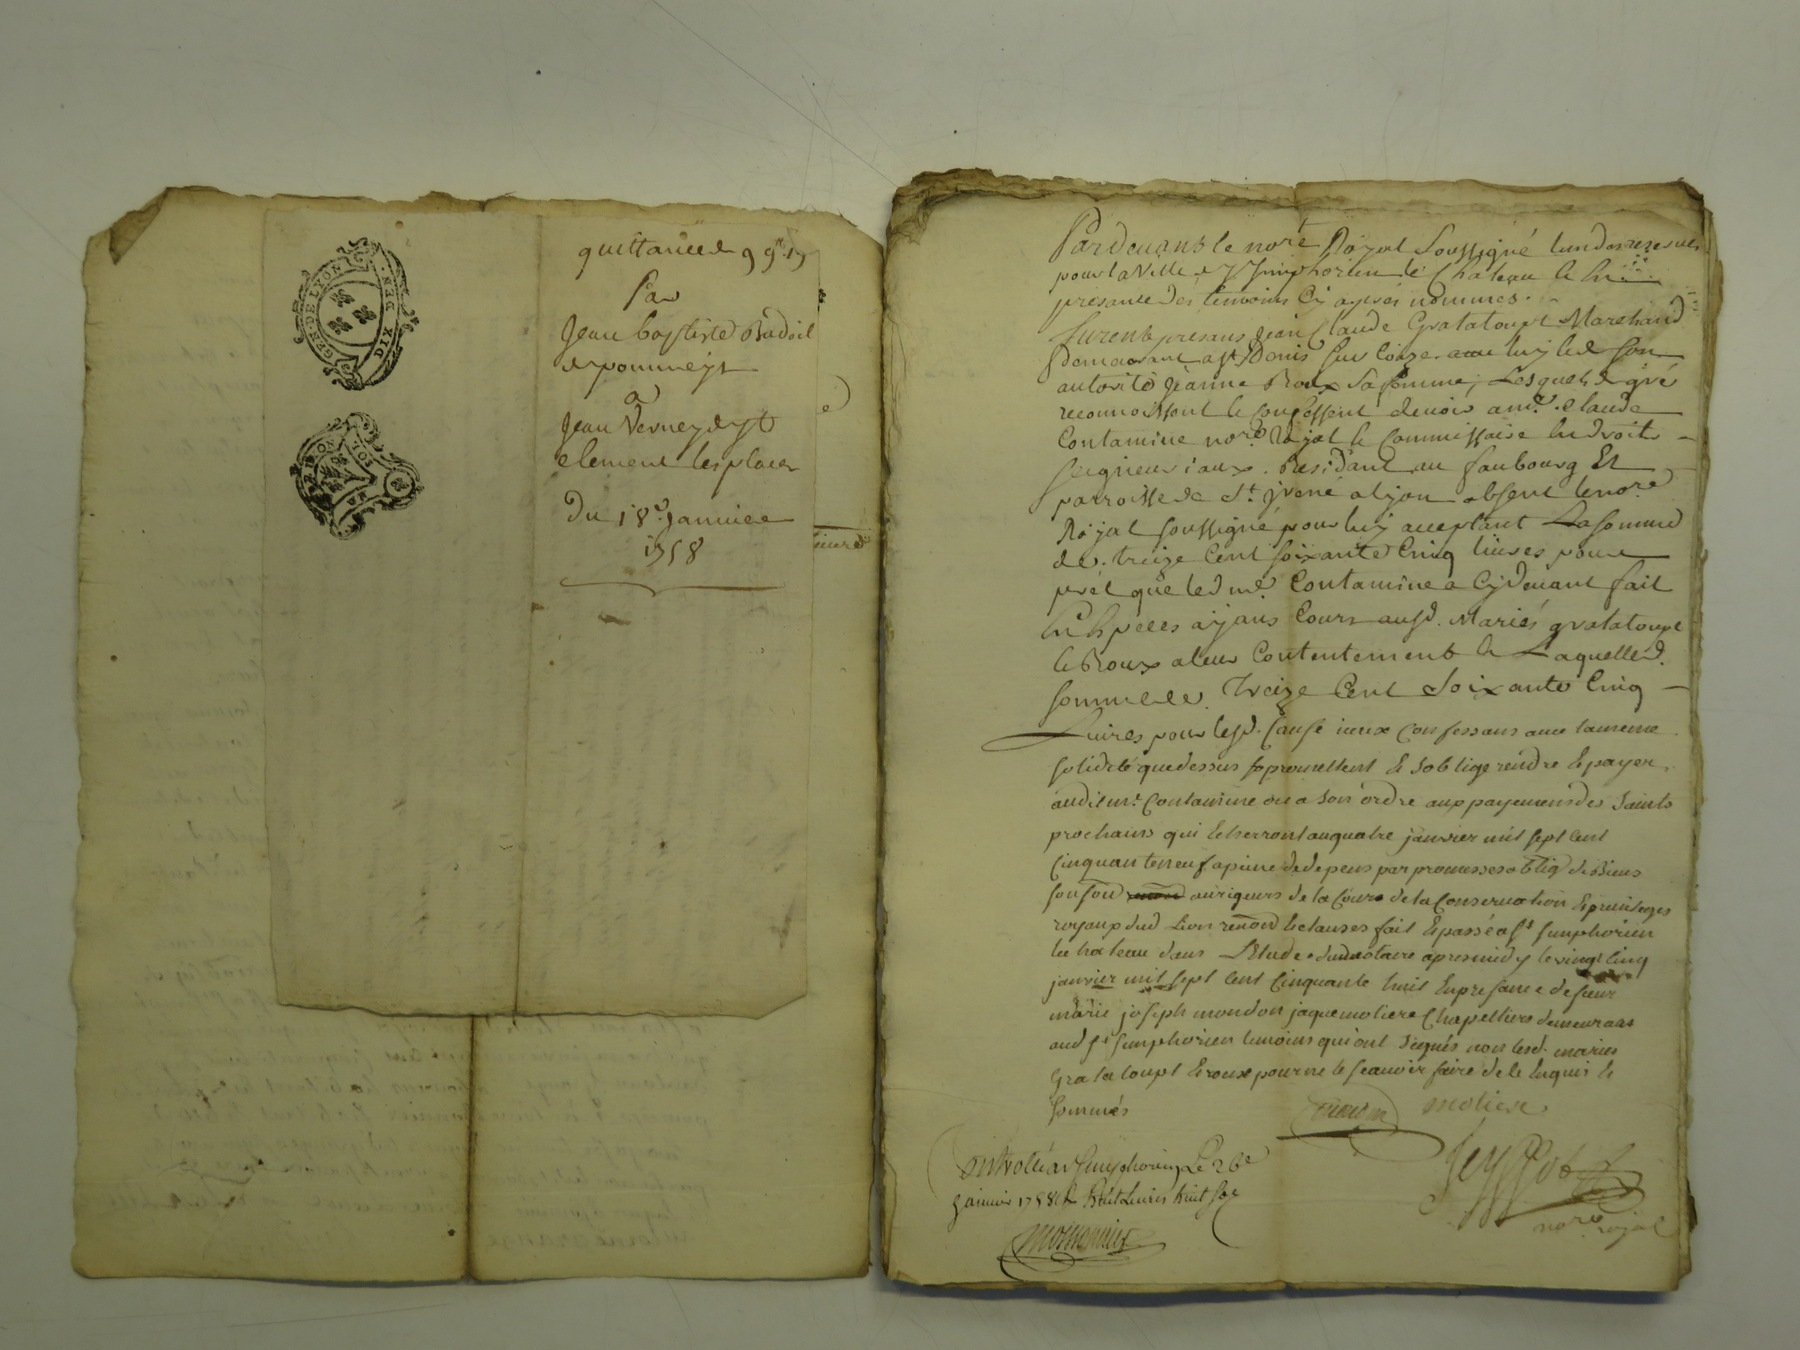 GEN. DE LYON
DIX DEN.
quittance de 99tt 19
Par
Jean baptiste Badoil
de pommeys
a
Jean Verney de st
clement les places
Du 18e. Janvier
1758
Pardevant le nore Royal Soussigné
pour la Ville de st Simphorien le Chateau &
presance des temoins Cy aprés nommés.
furent presans Jean Claude Grataloupt Marchand
Demeurant a st Denis sur Coize avec luy & de son
autorité Jeanne Roux Sa femme, Lesquels de gré
reconnoissent & Confessent devoir a mre. Claude
Contamine nore. Royal & Commissaire en droits
seigneuriaux. Residant au faubourg Et
parroisse de St. jrené a lyon absent le nore
Royal soussigné pour luy acceptant La somme
de. treize Cent soixante Cinq livres pour
prét que led. me. Contamine a Cy devant fait
En Especes ayans Cours ausd. Mariés grataloupt
& Roux a leur Contentement & Laquelle d.
somme de. Treize Cent Soixante Cinq
Livres pour lesd. Cause iceux Confessans avec la meme
solidité que dessus promettent & s'oblige rendre & payer
audit me. Contamine ou a son ordre aux payemens des Saints
prochains qui Echerront au quatre janvier mil sept Cent
Cinquante neuf a peine de depens par promesses oblig de Biens
aux rigeurs de la Cour de la Conservation & privileges
royaux dud Lion renond & clauses fait & passé a st Simphorien
le chateau dans L'Etude du notaire apres midy le vingt Cinq
janvier mil sept Cent Cinquante huit En presance de sieur
marie joseph mondon jaque moliere Chapelliers demeurant
aud st Simphorien temoins qui ont signés non lesd. mariés
Grataloupt & roux pour ne le sçavoir faire de ce Enquis &
sommés
mondon moliere
nore. royal
Controllé a st Simphorien Le 26e
Janvier 1758 Huit Livres huit